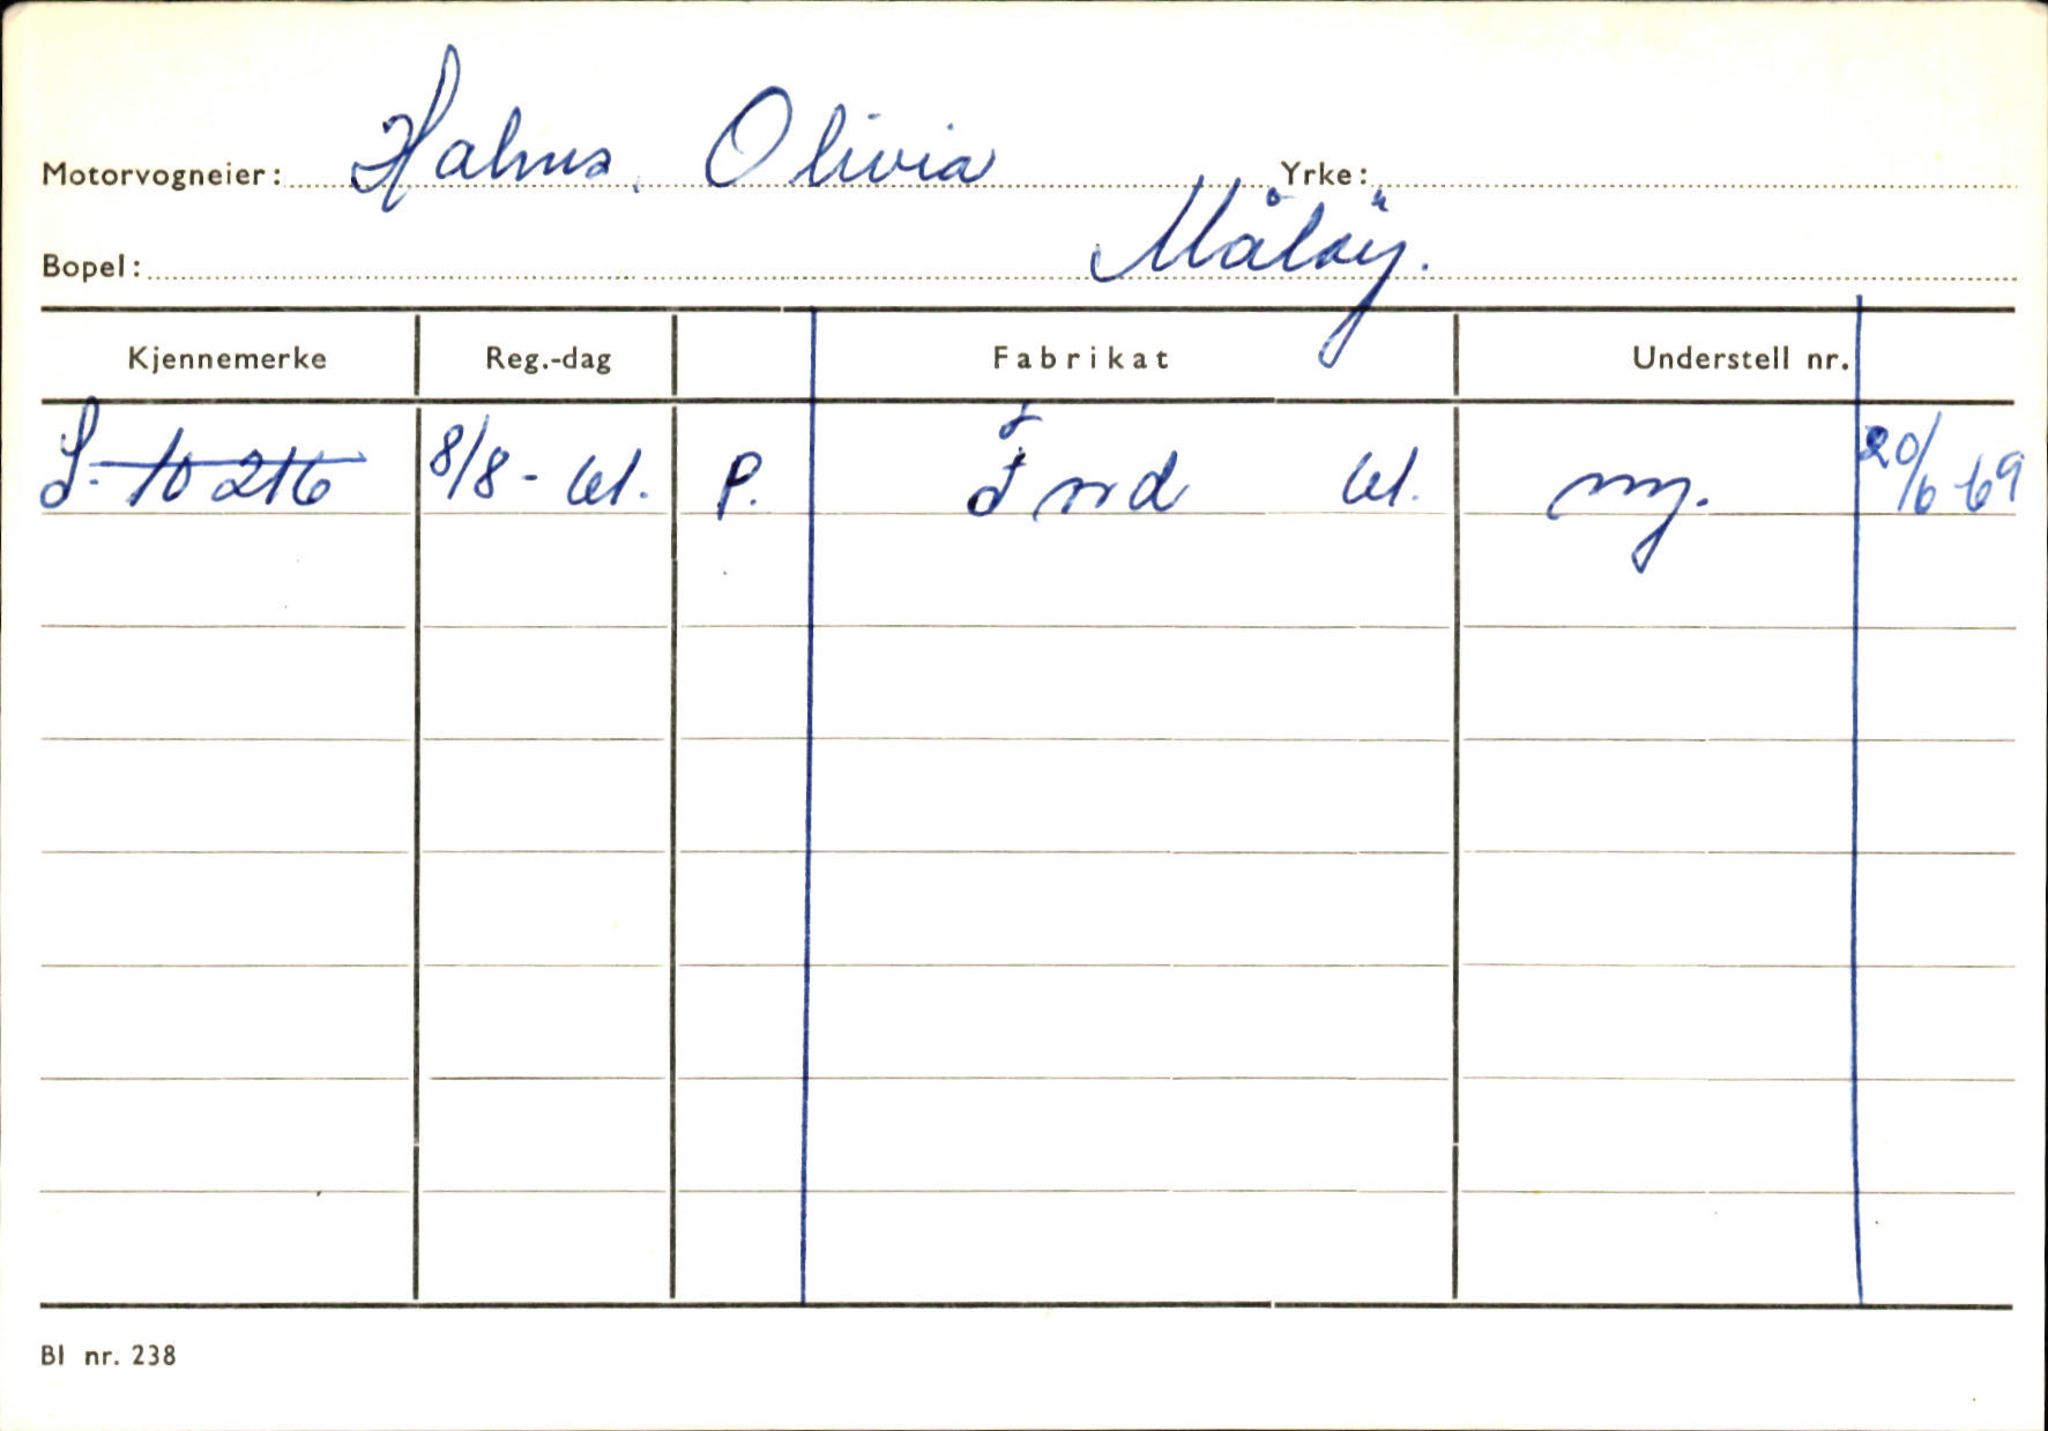 Motorvogneier: Halnes, Olivia Yrke:
Bopel: Måløy.
Kjennemerke Reg.-dag Fabrikat Understell nr.
S-10216 8/8-61. P. Ford 61. ny. 20/6-69
Bl nr. 238